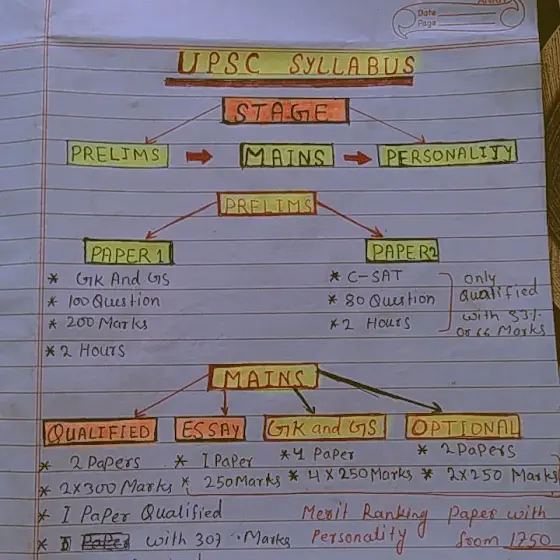 Date
Page
UPSC SYLLABUS
STAGE
PRELIMS MAINS PERSONALITY
PRELIMS
PAPER 1 PAPER2
* GK And GS * C-SAT only
* 100 Question * 80 Question Qualified
* 200 Marks * 2 Hours with 33%
* 2 Hours Or 66 Marks
MAINS
QUALIFIED ESSAY GK and GS OPTIONAL
* 2 Papers * 1 Paper * 4 Paper * 2 Papers
* 2x300 Marks * 250 Marks * 4x250 Marks * 2x250 Marks
* 1 Paper Qualified Merit Ranking Paper with
* with 30% Marks Personality from 1750